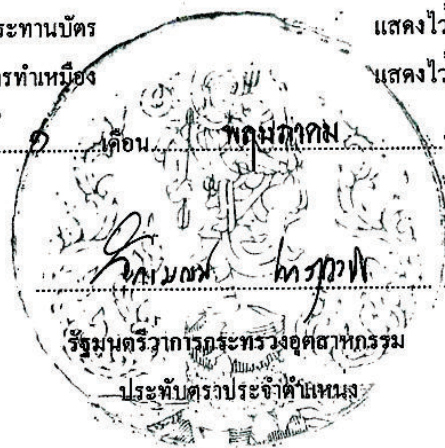 ระทานบัตร แสดงไว้
ารทำเหมือง แสดงไว้
๑ เดือน พฤษภาคม
รัฐมนตรีว่าการกระทรวงอุตสาหกรรม
ประทับตราประจำตำแหน่ง